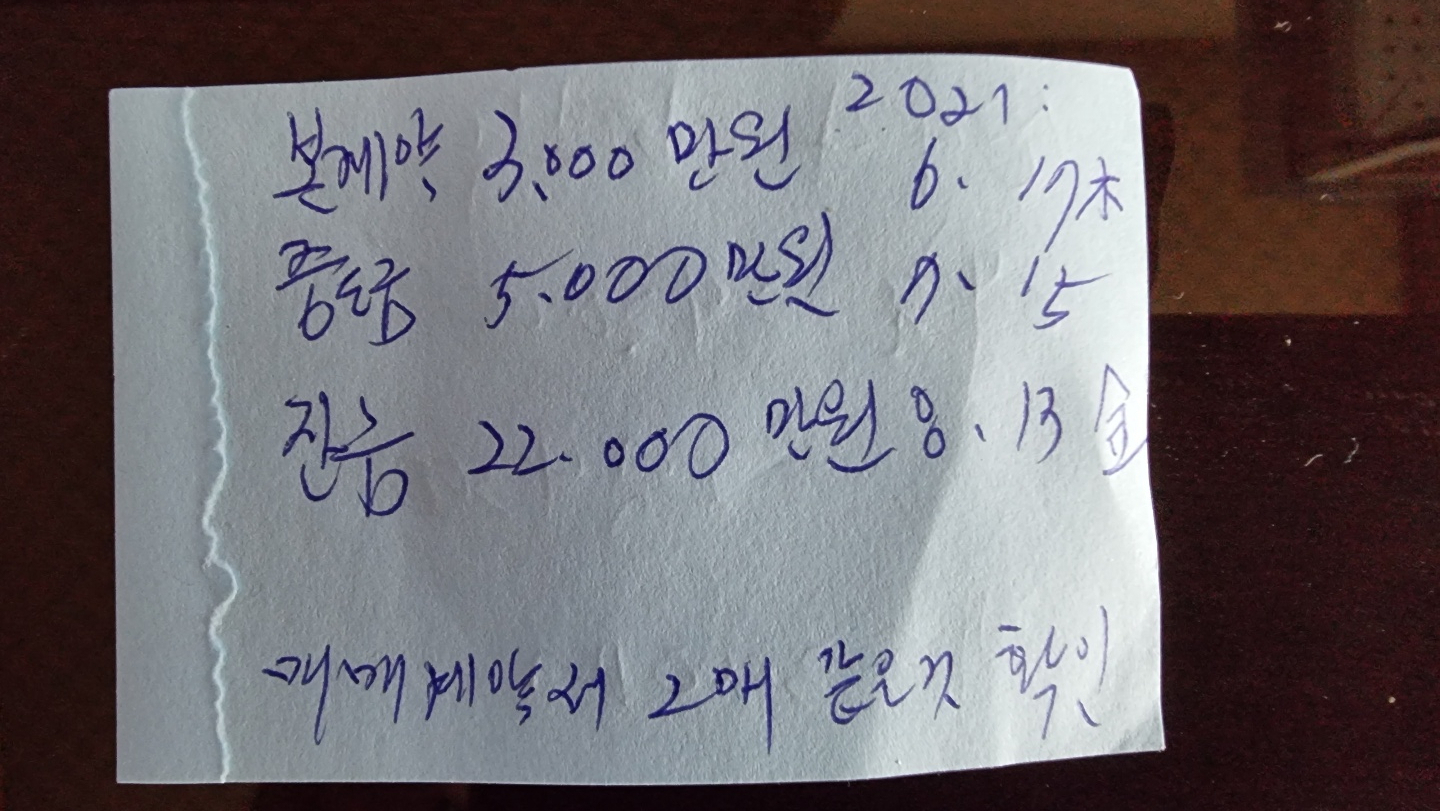 2021:
본계약 3,000 만원 6. 17 木
중도금 5.000 만원 7. 15
잔금 22.000 만원 8. 13 金
매매계약서 2매 같은것 확인